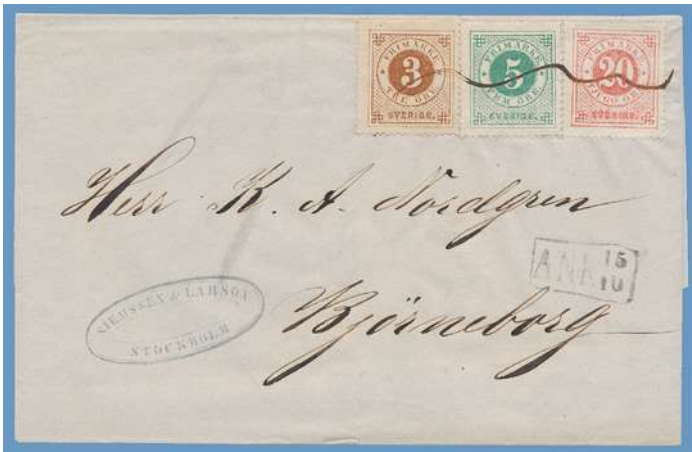 FRIMÄRKE
3
TRE ÖRE
SVERIGE.
FRIMÄRKE
5
FEM ÖRE.
SVERIGE.
FRIMÄRKE
20
TJUGO ÖRE
SVERIGE.
Herr K. A. Nordgren
ANK 15
10
SIEMSSEN & LARSON
STOCKHOLM
Björneborg